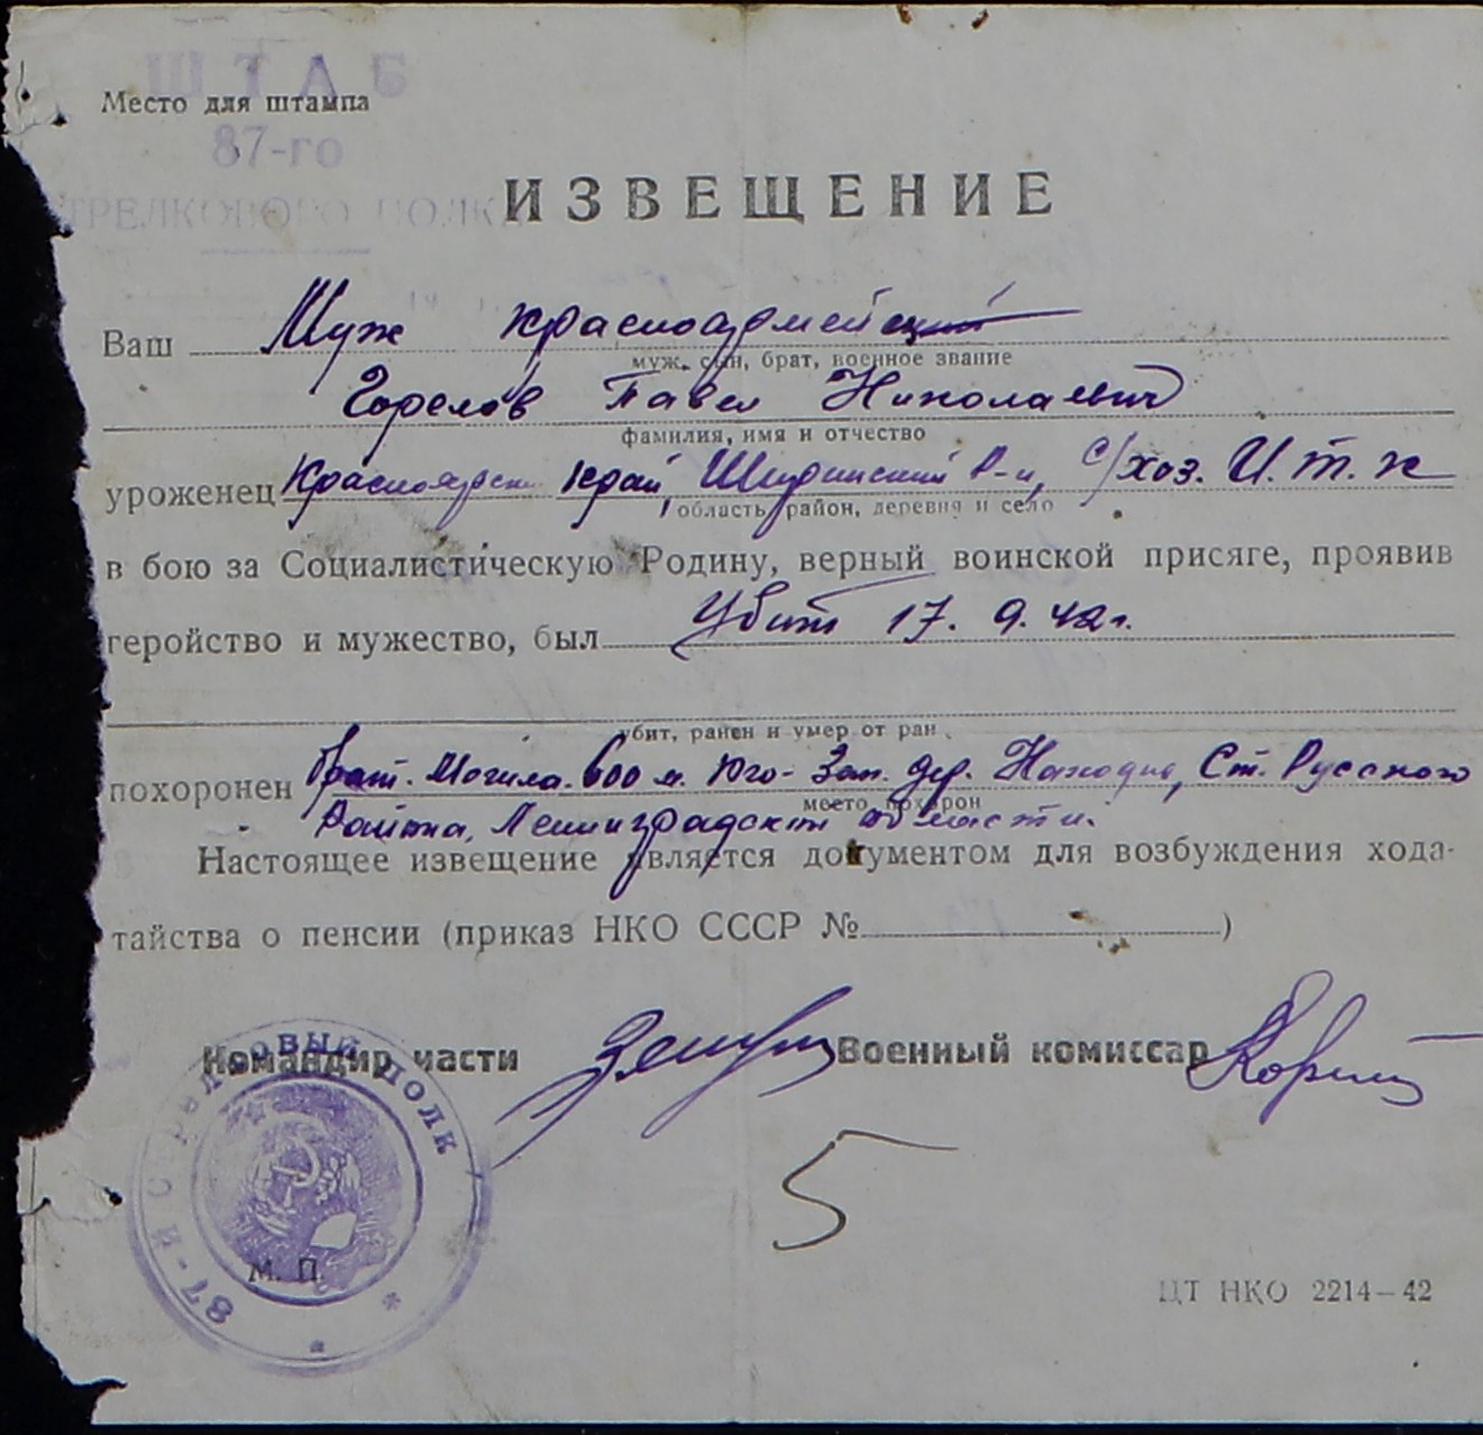 ШТАБ
Место для штампа
87-го
СТРЕЛКОВОГО ПОЛКА
ИЗВЕЩЕНИЕ
Ваш Муж красноармеец
муж, сын, брат, военное звание
Горелов Павел Николаевич
фамилия, имя и отчество
уроженец Красноярский край, Р-н, с/хоз. И.т.к
область, район, деревня и село
в бою за Социалистическую Родину, верный воинской присяге, проявив
геройство и мужество, был Убит 17. 9. 42 г.
убит, ранен и умер от ран
похоронен Брат. Могила. 600 м. Юго-Зап. дер. Находно, Ст. Русского
место похорон
Района, Ленинградской области.
Настоящее извещение является документом для возбуждения хода-
тайства о пенсии (приказ НКО СССР № )
Командир части Военный комиссар
87-Й СТРЕЛКОВЫЙ ПОЛК
5
М. П.
ЦТ НКО 2214—42